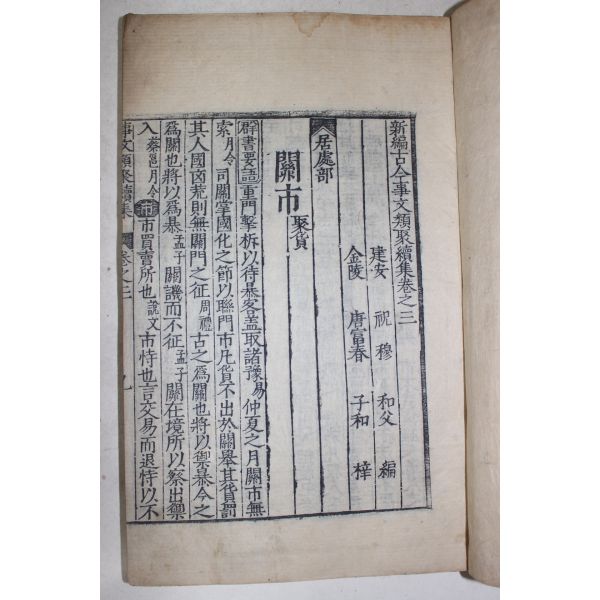 新編古今事文類聚續集卷之三
建安 祝穆 和父 編
金陵 唐富春 子和 梓
居處部
關市 聚貨
群書要語 重門擊柝以待暴客盖取諸豫易 仲夏之月關市無
索月令 司關掌國化之節以聯門市凡貨不出於關舉其貨罰
其人國凶荒則無關門之征周禮 古之爲關也將以禦暴今之
爲關也將以爲暴孟子 關譏而不征孟子 關在境所以察出禦
入蔡邕月令 市 市買賣所也說文 市恃也言交易而退恃以不
事文類聚續集 卷之三 九